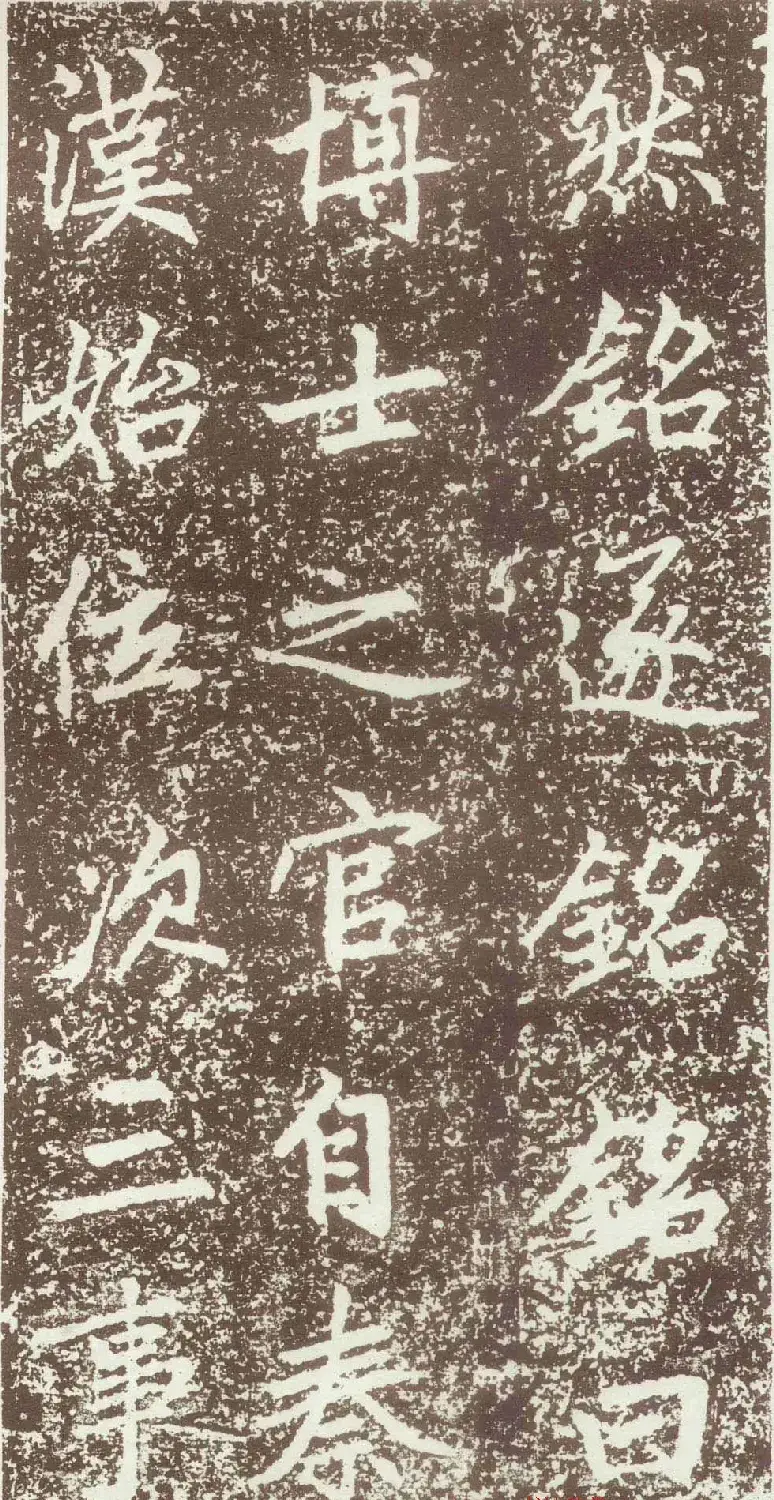 然銘遂銘銘曰
博士之官自秦
漢始位次三事